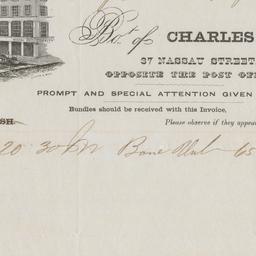 Bot. of CHARLES
37 NASSAU STREET
OPPOSITE THE POST OF
PROMPT AND SPECIAL ATTENTION GIVEN
Bundles should be received with this Invoice,
SH. Please observe if they appea
20 30 Bone 65